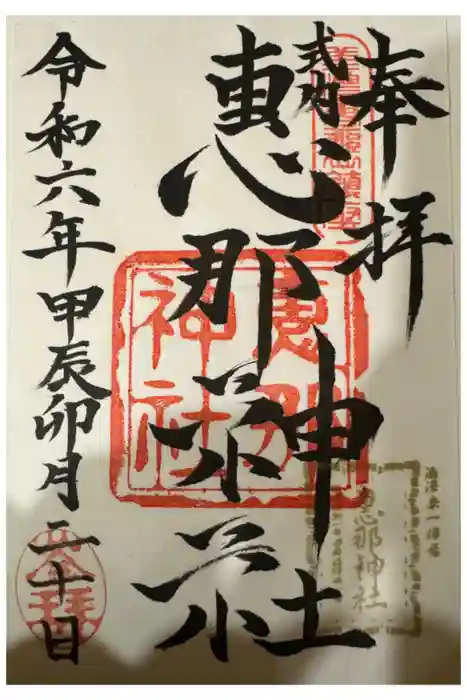 奉拝
式内
惠那神社
令和六年甲辰卯月二十日
惠那
神社
奉拝
恵那神社